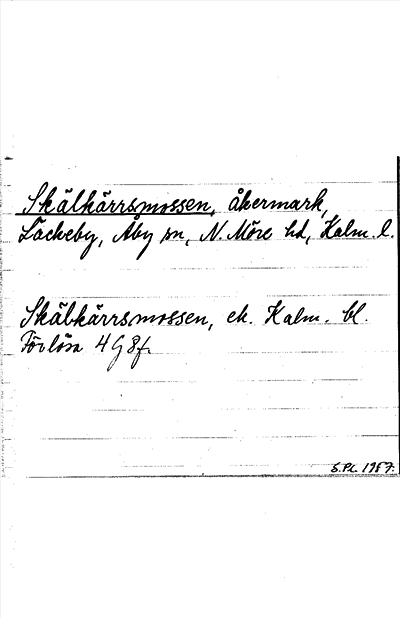 Skälkärrsmossen, åkermark,
Läckeby, Åby sn, N. Möre hd, Kalm. l.
Skälkärrsmossen, ek. Kalm. bl.
Förlösa 4G 8f.
S.Pl. 1957.